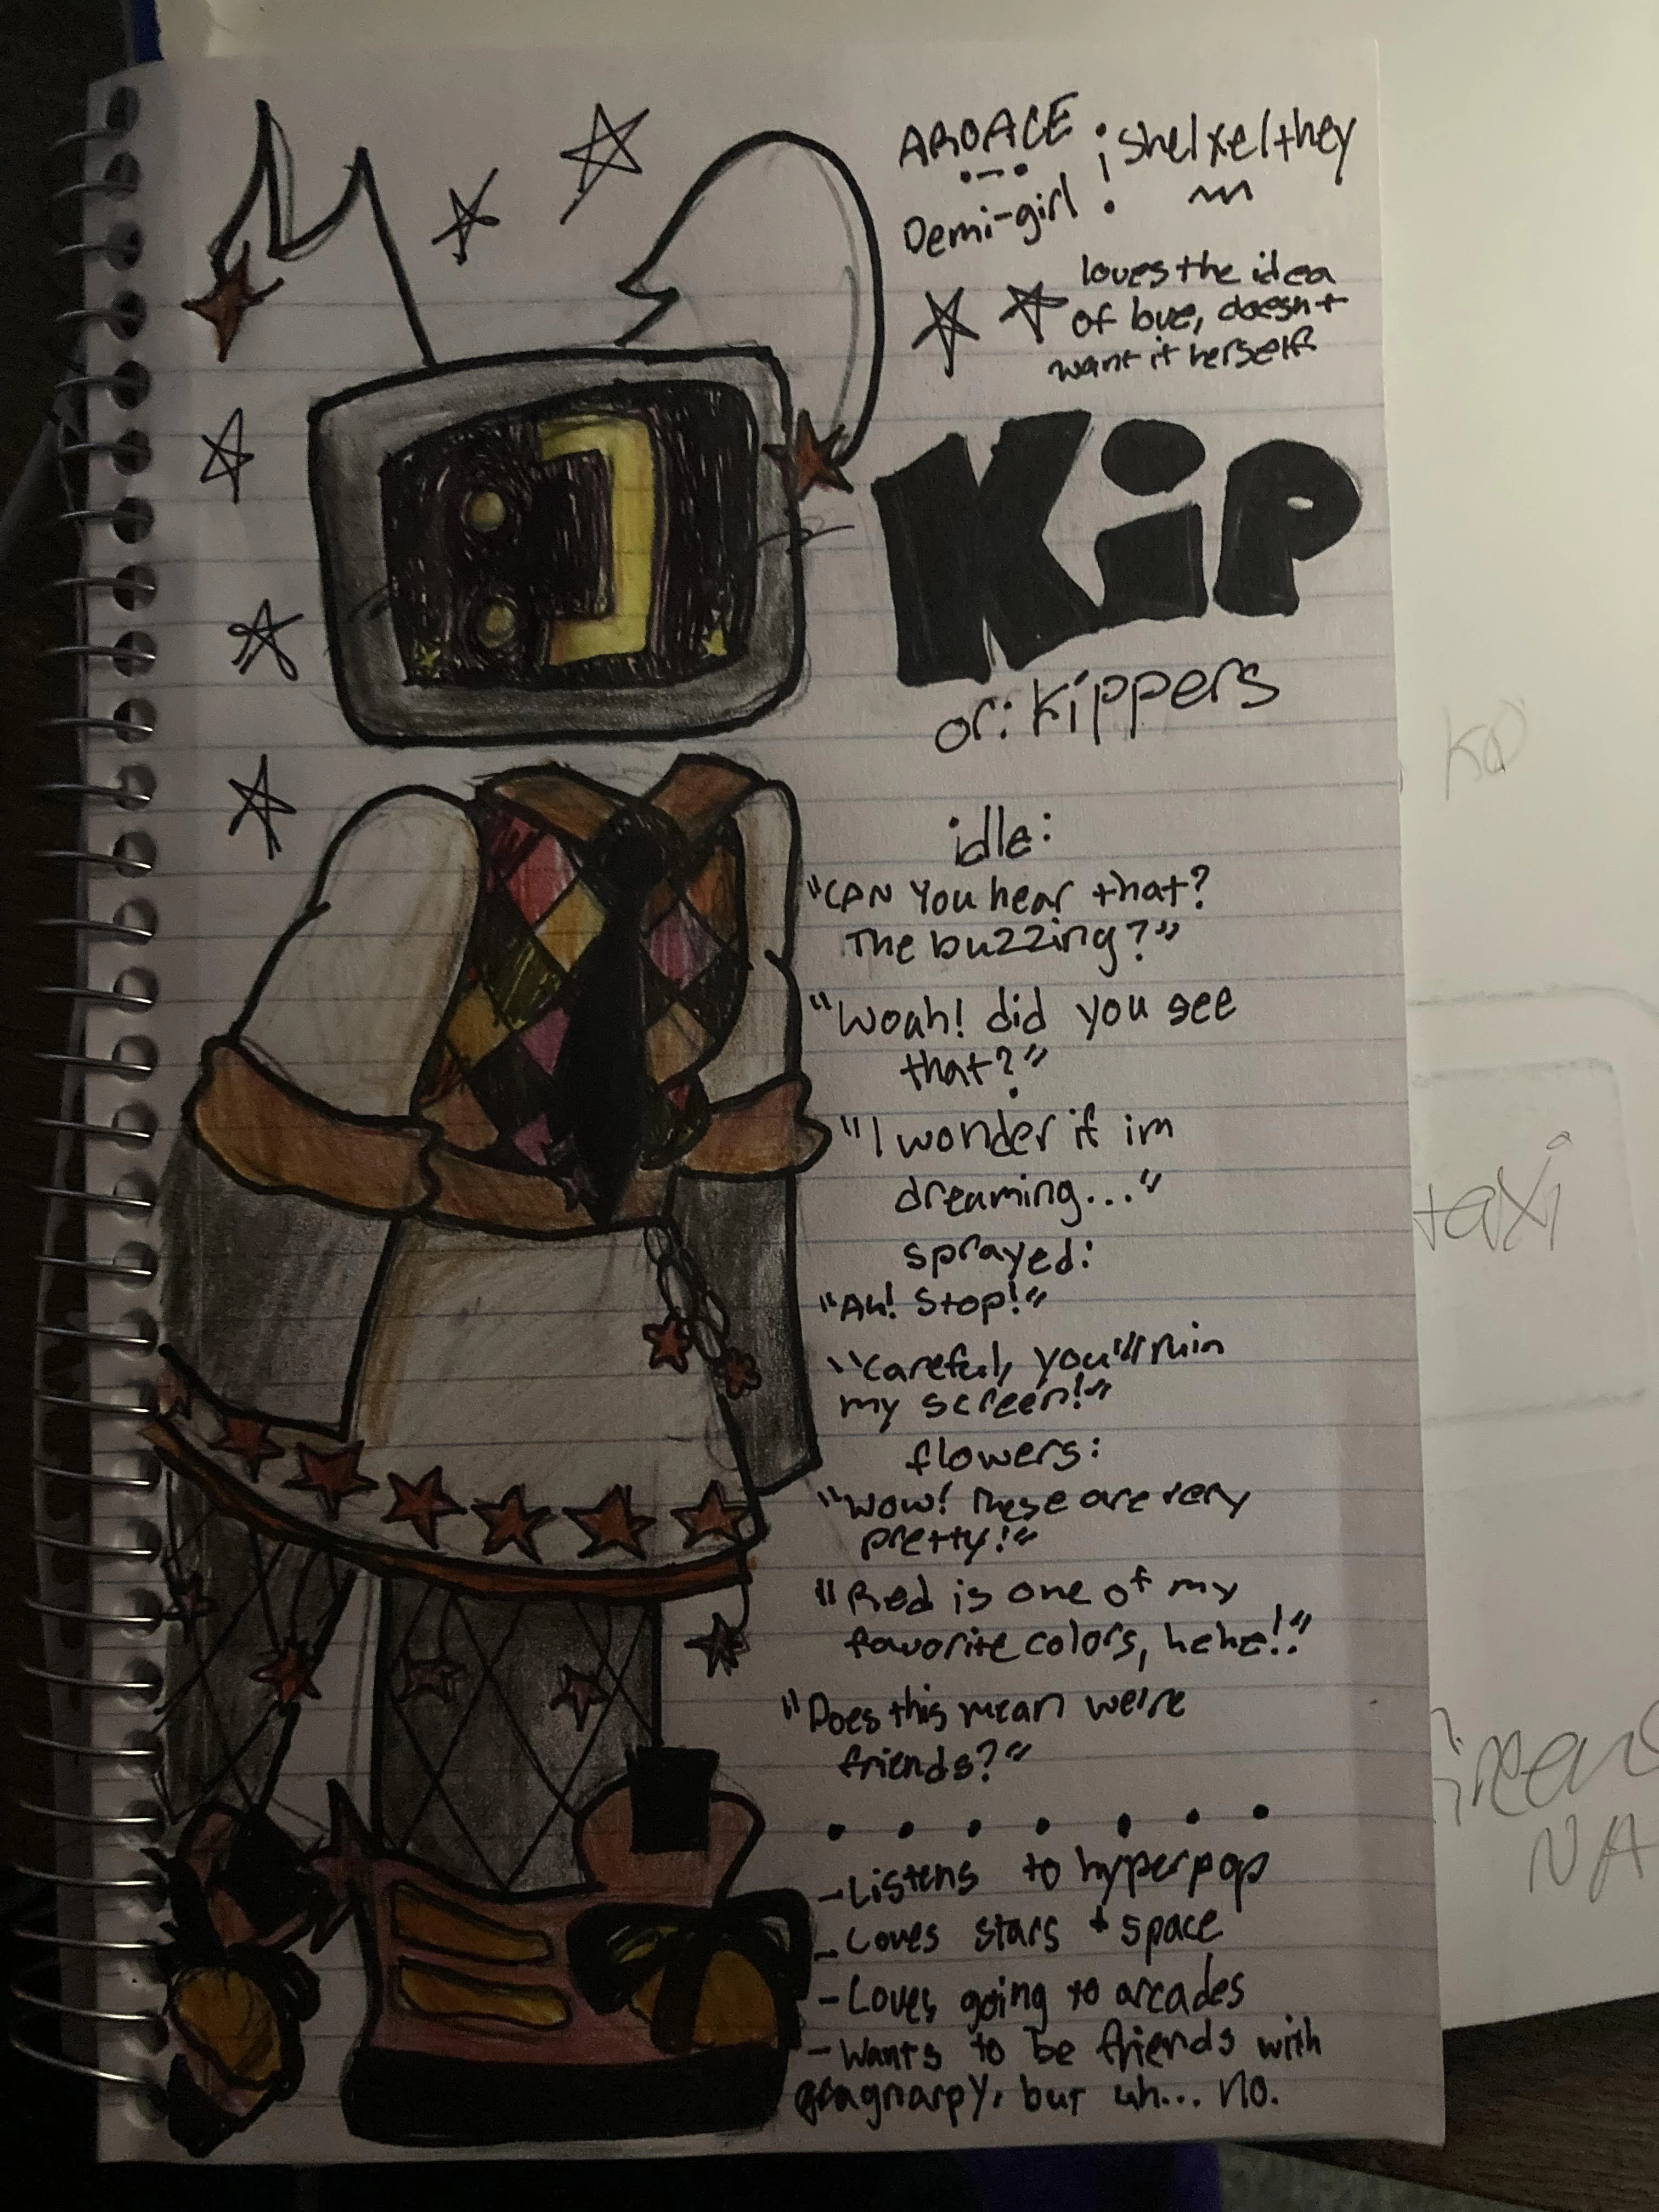 AROACE
Demi-girl
she/xe/they
loves the idea
of love, doesn't
want it herself
Kip
or: Kippers
idle:
"CAN You hear that?
The buzzing?"
"Woah! did you see
that?"
"I wonder if im
dreaming..."
sprayed:
"Ah! Stop!"
"Careful, you'll ruin
my screen!"
flowers:
"Wow! These are very
pretty!"
"Red is one of my
favorite colors, hehe!"
"Does this mean we're
friends?"
- Listens to hyperpop
- Loves stars + space
- Loves going to arcades
- Wants to be friends with
gnarpy, but uh... no.
taxi
NA